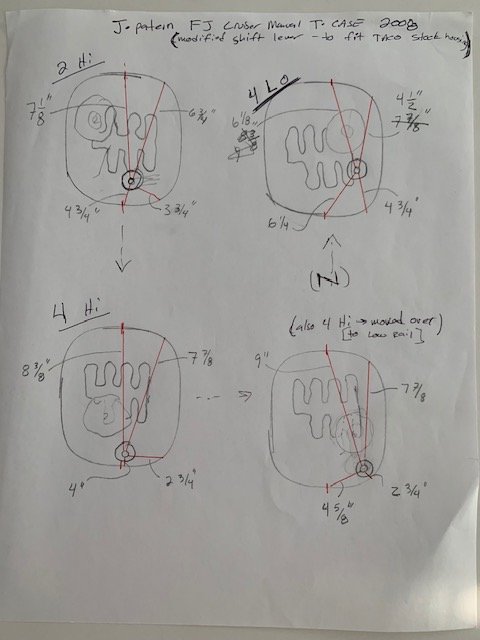 J-pattern FJ Cruiser Manual T-CASE 2008
(modified shift lever - to fit TACO stock housing)
2 Hi
7 1/8"
6 3/4"
4 3/4"
3 3/4"
4 LO
6 1/8"
4 1/2"
7 3/8"
6 1/4
4 3/4"
(N)
4 Hi
8 3/8"
7 7/8
4"
2 3/4"
(also 4 Hi → moved over)
[to Low Rail]
9"
7 7/8
4 5/8"
2 3/4"